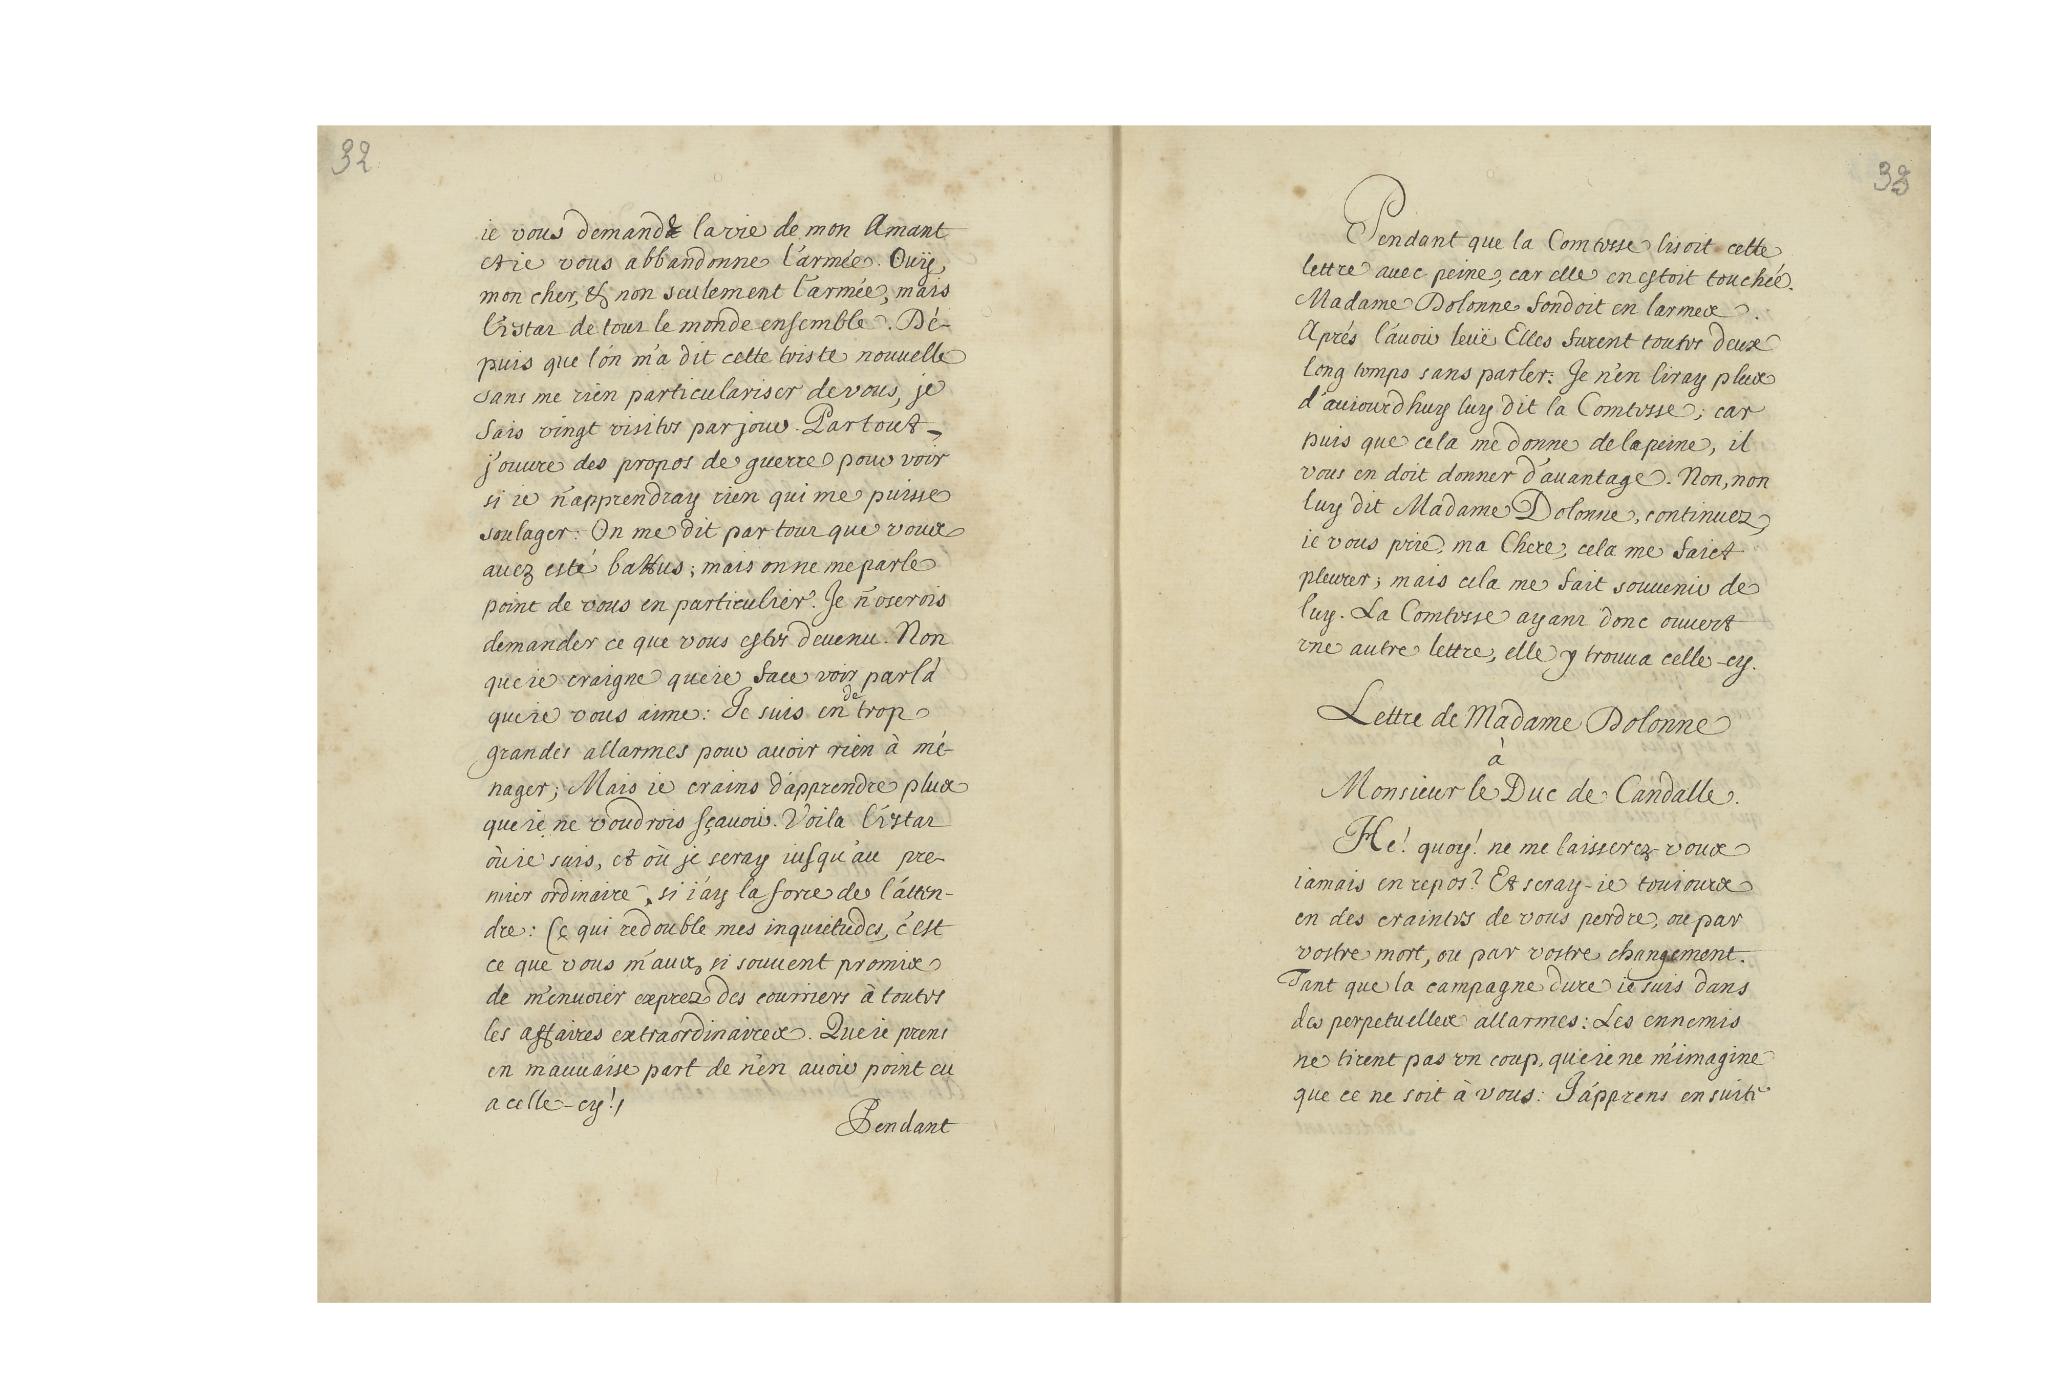 32
ie vous demande la vie de mon Amant
et ie vous abbandonne l'armée. Ouÿ,
mon cher, & non seulement l'armée, mais
l'Estat de tout le monde ensemble. Dé-
puis que l'on m'a dit cette triste nouuelle
sans me rien particulariser de vous, je
fais vingt visites par jour. Partout
j'ouure des propos de guerre pour voir
si ie n'apprendray rien qui me puisse
soulager: On me dit par tout que vous
auez esté battus; mais on ne me parle
point de vous en particulier. Je n'oserois
demander ce que vous estes deuenu. Non
que ie craigne que ie face voir par là
que ie vous aime: Je suis en de trop
grandes allarmes pour auoir rien à mé-
nager; Mais ie crains d'apprendre plus
que ie ne voudrois sçauoir. Voila l'Estat
où ie suis, et où je seray iusqu'au pre-
mier ordinaire, si i'ay la force de l'atten-
dre: Ce qui redouble mes inquietudes, c'est
ce que vous m'auez si souuent promis
de m'enuoier exprez des courriers à toutes
les affaires extraordinaires. Que ie prens
en mauuaise part de n'en auoir point eu
a celle-cy!
Pendant
33
Pendant que la Comtesse lisoit cette
lettre auec peine, car elle en estoit touchée.
Madame Dolonne fondoit en larmes.
Aprés l'auoir leüe Elles furent toutes deux
long temps sans parler: Je n'en liray plus
d'auiourdhuy luy dit la Comtesse; car
puis que cela me donne de la peine, il
vous en doit donner d'auantage. Non, non
luy dit Madame Dolonne, continuez,
ie vous prie, ma Chere, cela me faict
pleurer; mais cela me fait souuenir de
luy. La Comtesse ayant donc ouuert
vne autre lettre, elle y trouua celle-cy.
Lettre de Madame Dolonne
à
Monsieur le Duc de Candalle.
He! quoy! ne me laisserez-vous
iamais en repos? Et seray-ie toujours
en des craintes de vous perdre, ou par
vostre mort, ou par vostre changement.
Tant que la campagne dure ie suis dans
des perpetuelles allarmes: Les ennemis
ne tirent pas vn coup, que ie ne m'imagine
que ce ne soit à vous: J'apprens ensuite